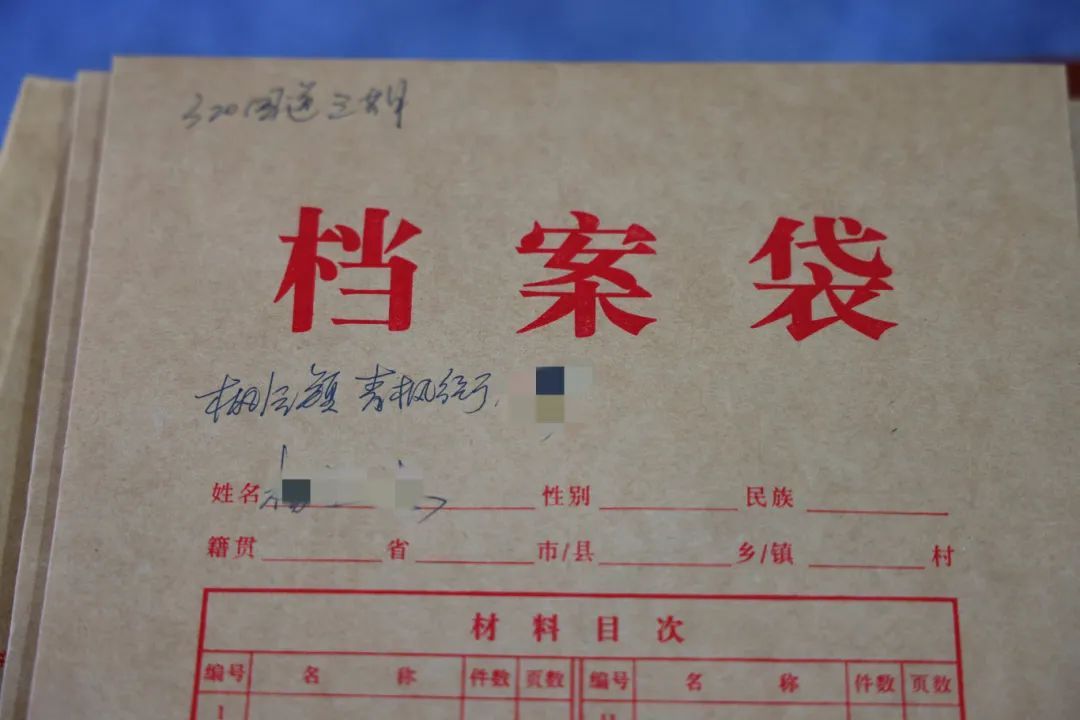 320国道三期
档案袋
枫泾镇 青枫街
姓名 性别 民族
籍贯 省 市/县 乡/镇 村
材料目次
编号 名称 件数 页数 编号 名称 件数 页数
1 11